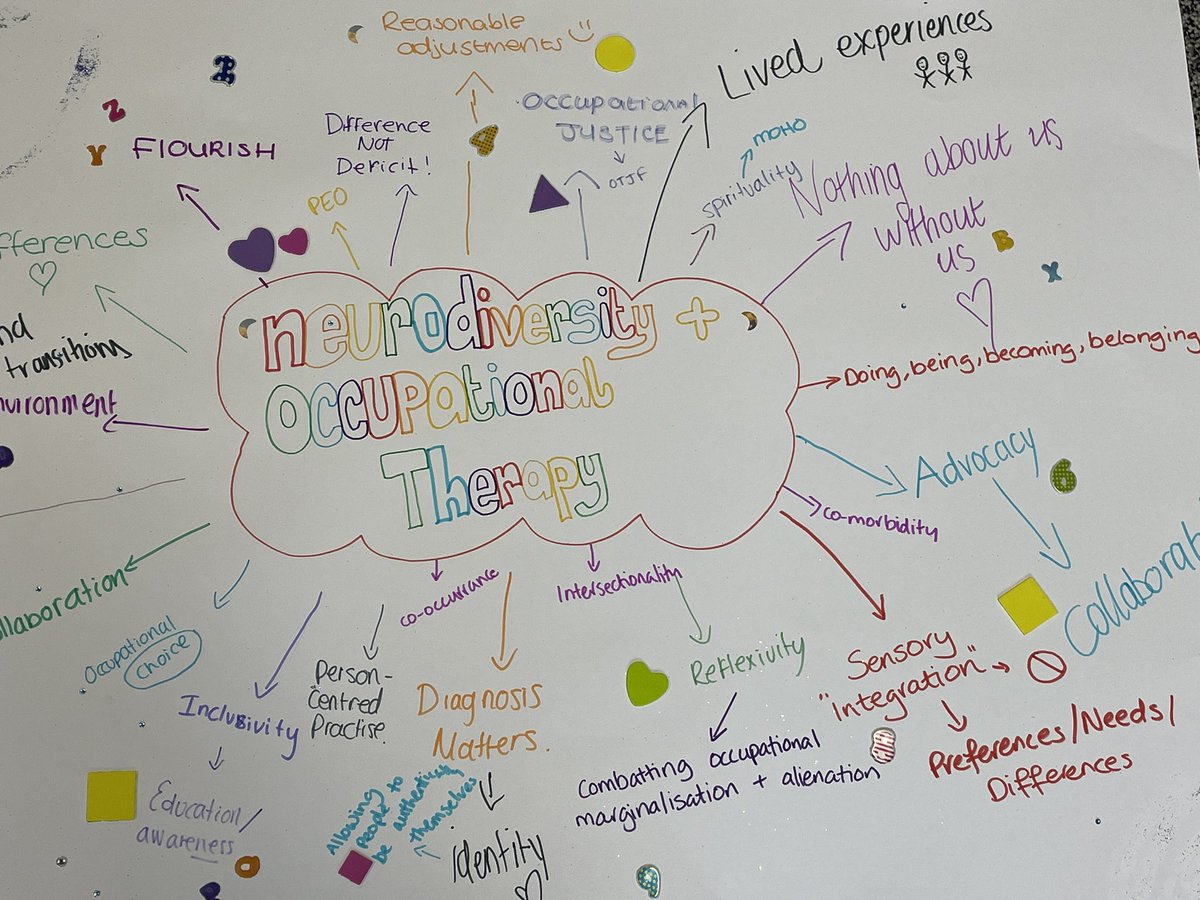 Reasonable
adjustments
Lived experiences
Difference
Not
Dericit!
OCCUPATIONAL
JUSTICE
OTJF
MOHO
spirituality
FLOURISH
PEO
Nothing about us
without
us
fferences
nd
transitions
nvironment
neurodiversity +
Occupational
Therapy
Doing, being, becoming, belonging
Advocacy
co-morbidity
Collaborat
llaboration
Occupational
choice
Inclusivity
Education/
awareness
Person-
Centred
Practise.
co-occurrance
Diagnosis
Matters.
Identity
Allowing
people to
be authentically
themselves
Intersectionality
Reflexivity
Combatting occupational
marginalisation + alienation
Sensory
"integration"
Preferences/Needs/
Differences